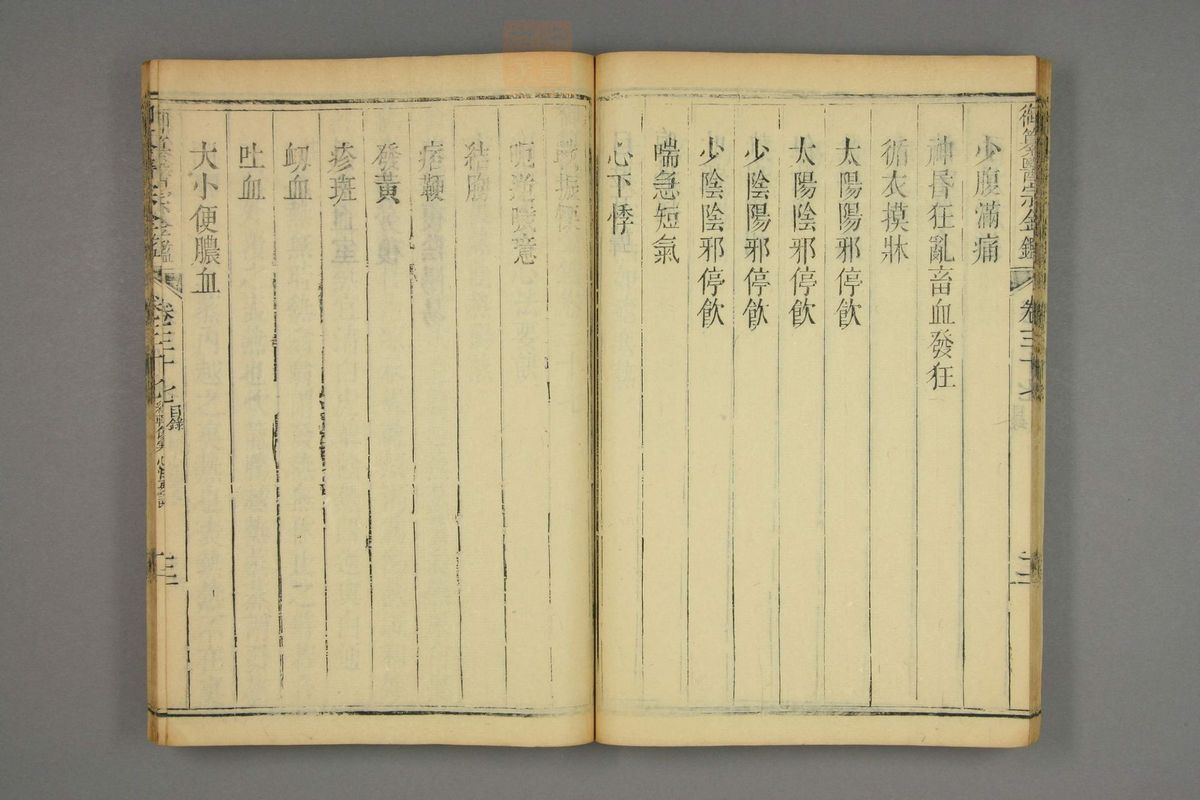 御纂醫宗金鑑 卷三十七
少腹滿痛
神昏狂亂畜血發狂
循衣摸牀
太陽陽邪停飲
太陽陰邪停飲
少陰陽邪停飲
少陰陰邪停飲
喘急短氣
心下悸
戰振慄
呃逆噦噫
結胸
痞鞕
發黃
疹斑
衂血
吐血
大小便膿血
卷三十七 目錄